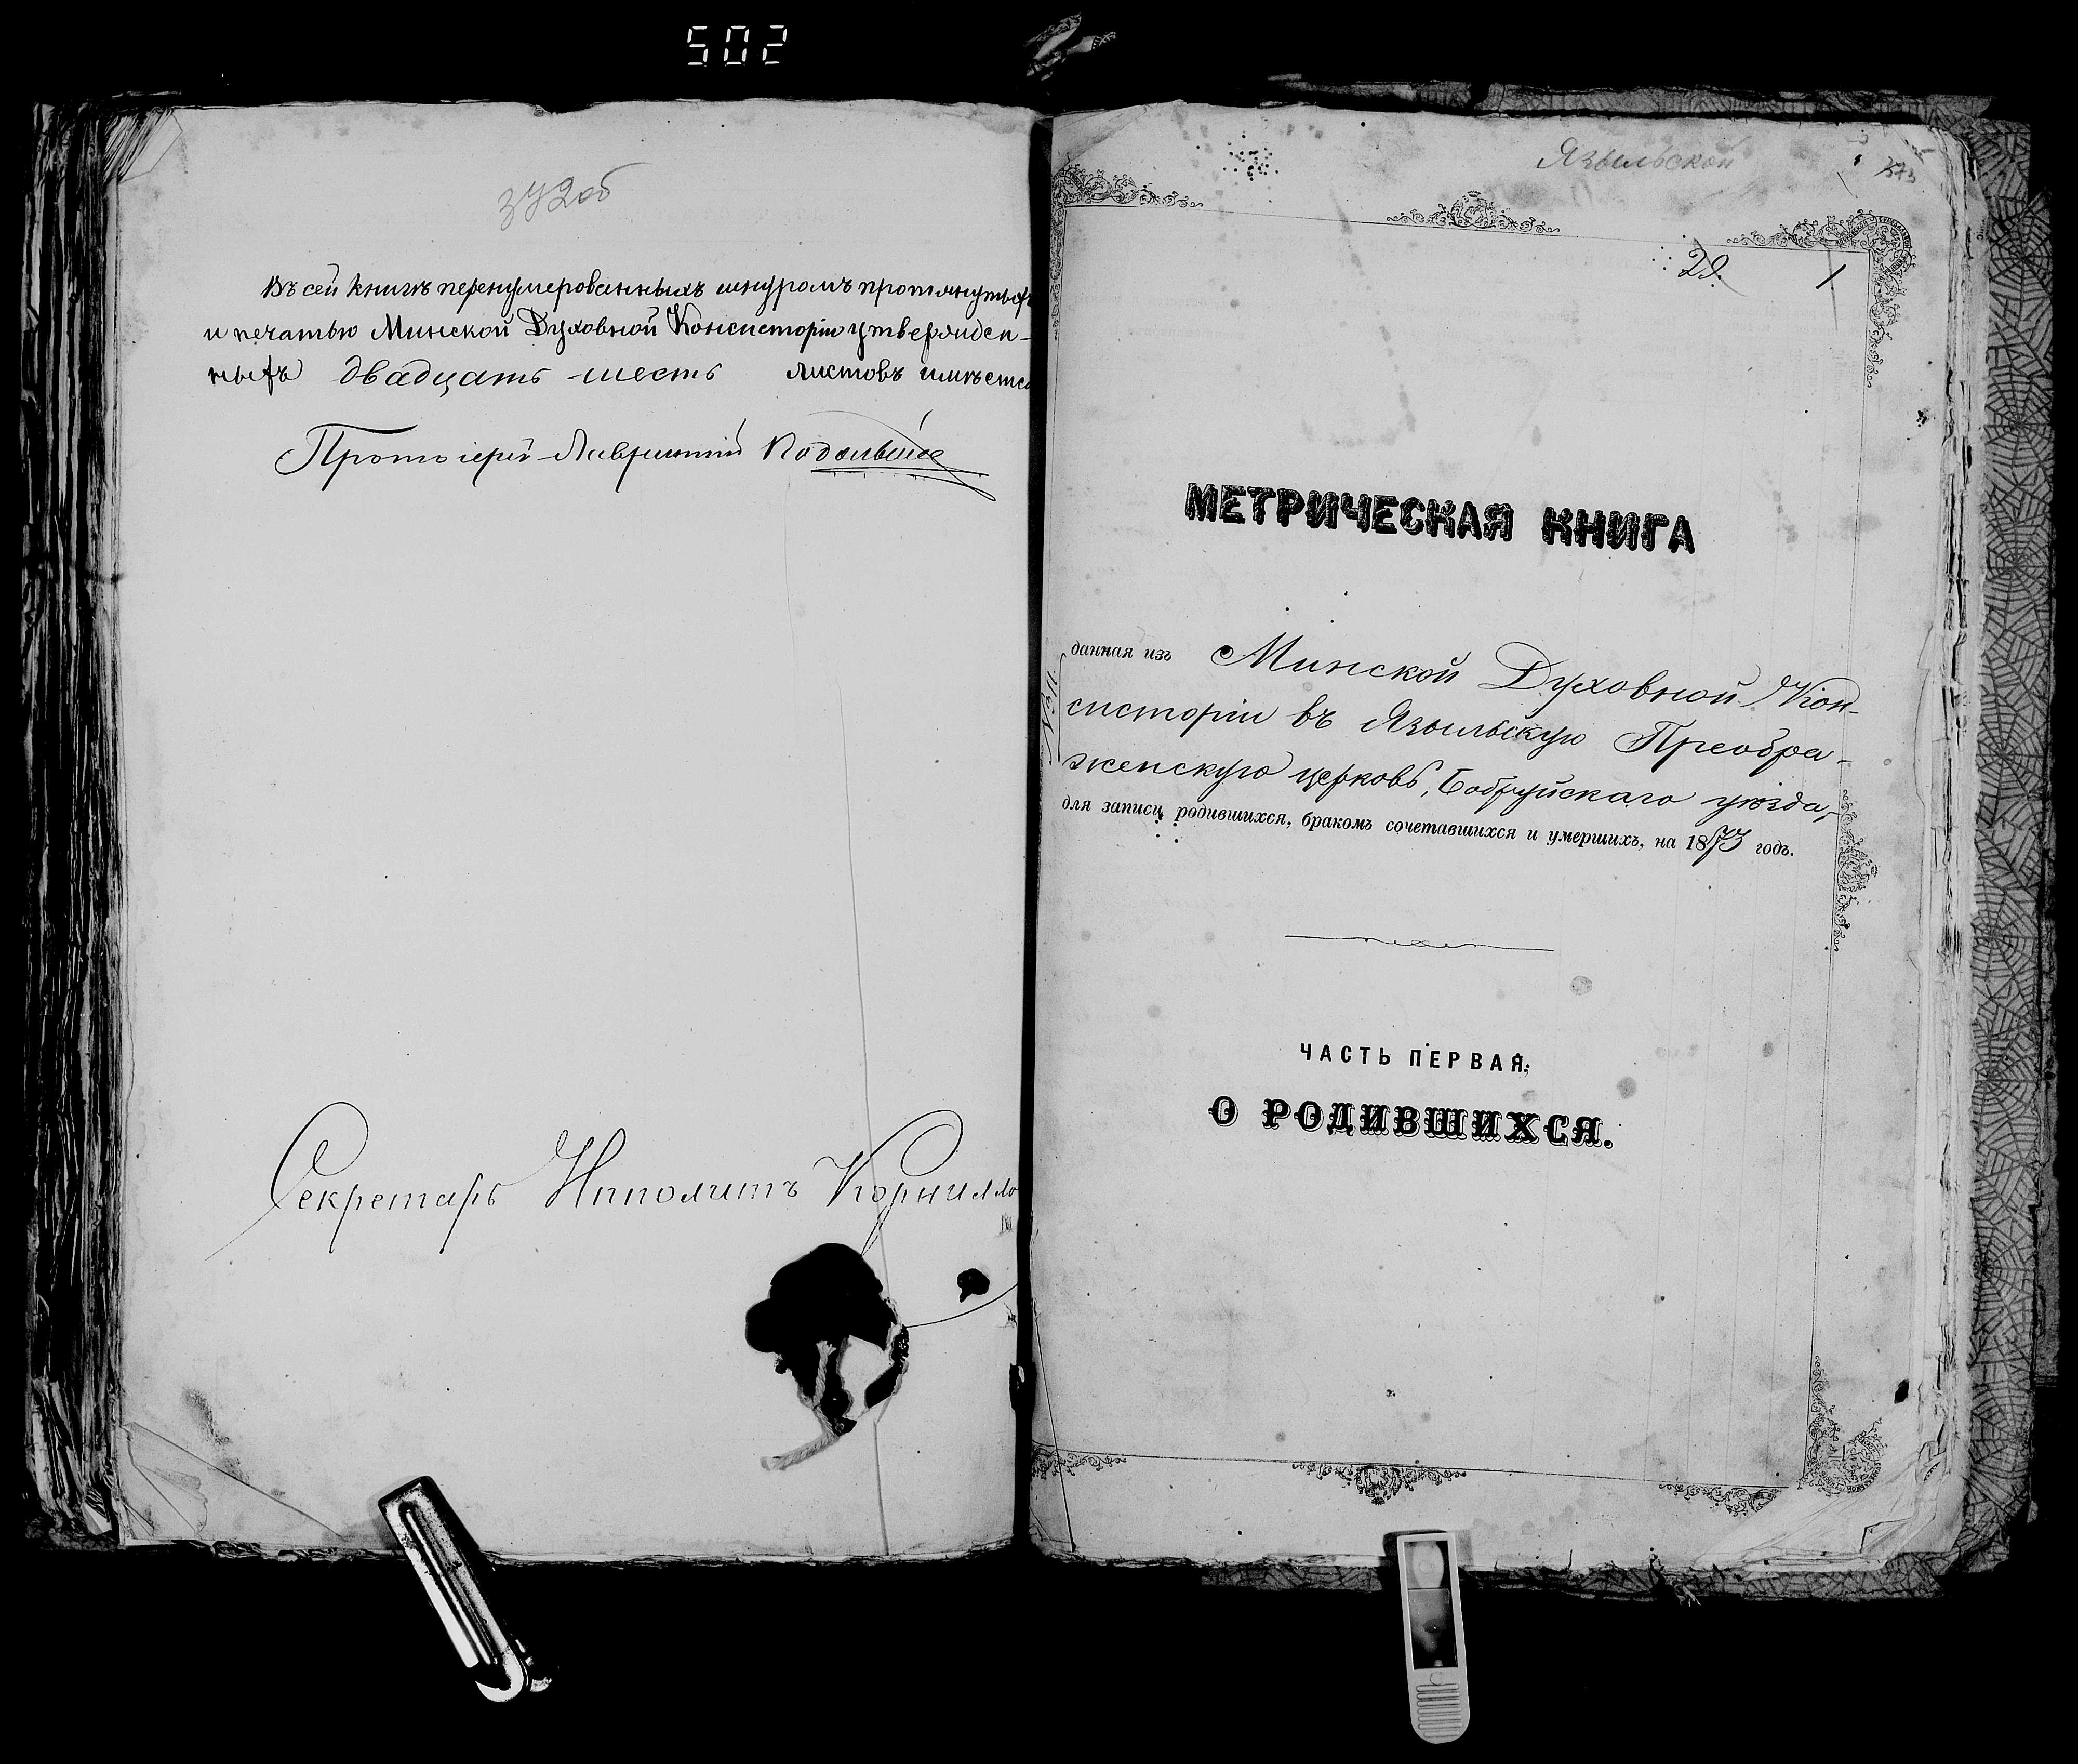 502
372об
Въ сей книгѣ перенумерованныхъ шнуромъ протянутыхъ
и печатью Минской Духовной Консисторіи утвержден-
ныхъ двадцать шесть листовъ имѣется
Протоіерей Лаврентій
Секретарь Ипполитъ Корнилло
Языльской
373
29. 1
МЕТРИЧЕСКАЯ КНИГА
данная изъ Минской Духовной Кон-
систоріи въ Языльскую Преобра-
женскую церковь, Бобруйскаго уѣзда,
для записи родившихся, бракомъ сочетавшихся и умершихъ, на 1873 годъ.
ЧАСТЬ ПЕРВАЯ.
О РОДИВШИХСЯ.